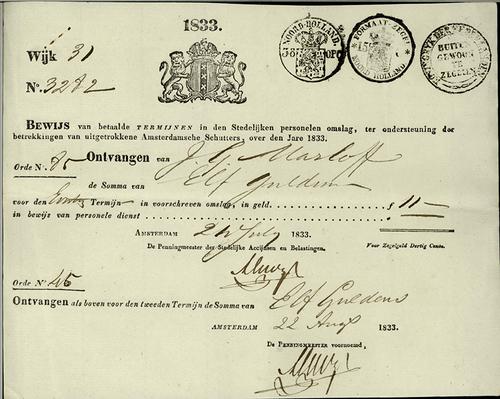 1833.
Wijk 31
No. 3282
NOORD-HOLLAND
FORMAAT-ZEGEL
NOORD HOLLAND
BUITEN
GEWOON
TE
ZEGELEN
BEWIJS van betaalde TERMIJNEN in den Stedelijken personelen omslag, ter ondersteuning der
betrekkingen van uitgetrokkene Amsterdamsche Schutters, over den Jare 1833.
Orde No. 85 Ontvangen van J. J. Masloff
de Somma van Elf Gulden
voor den Eerste Termijn in voorschreven omslag, in geld. $ 11 —
in bewijs van personele dienst
AMSTERDAM 24 July 1833.
De Penningmeester der Stedelijke Accijnsen en Belastingen.
Voor Zegelgeld Dertig Cents.
Orde No. 45
Ontvangen als boven voor den tweeden Termijn de Somma van Elf Guldens
AMSTERDAM 22 Augt 1833.
De PENNINGMEESTER voornoemd,